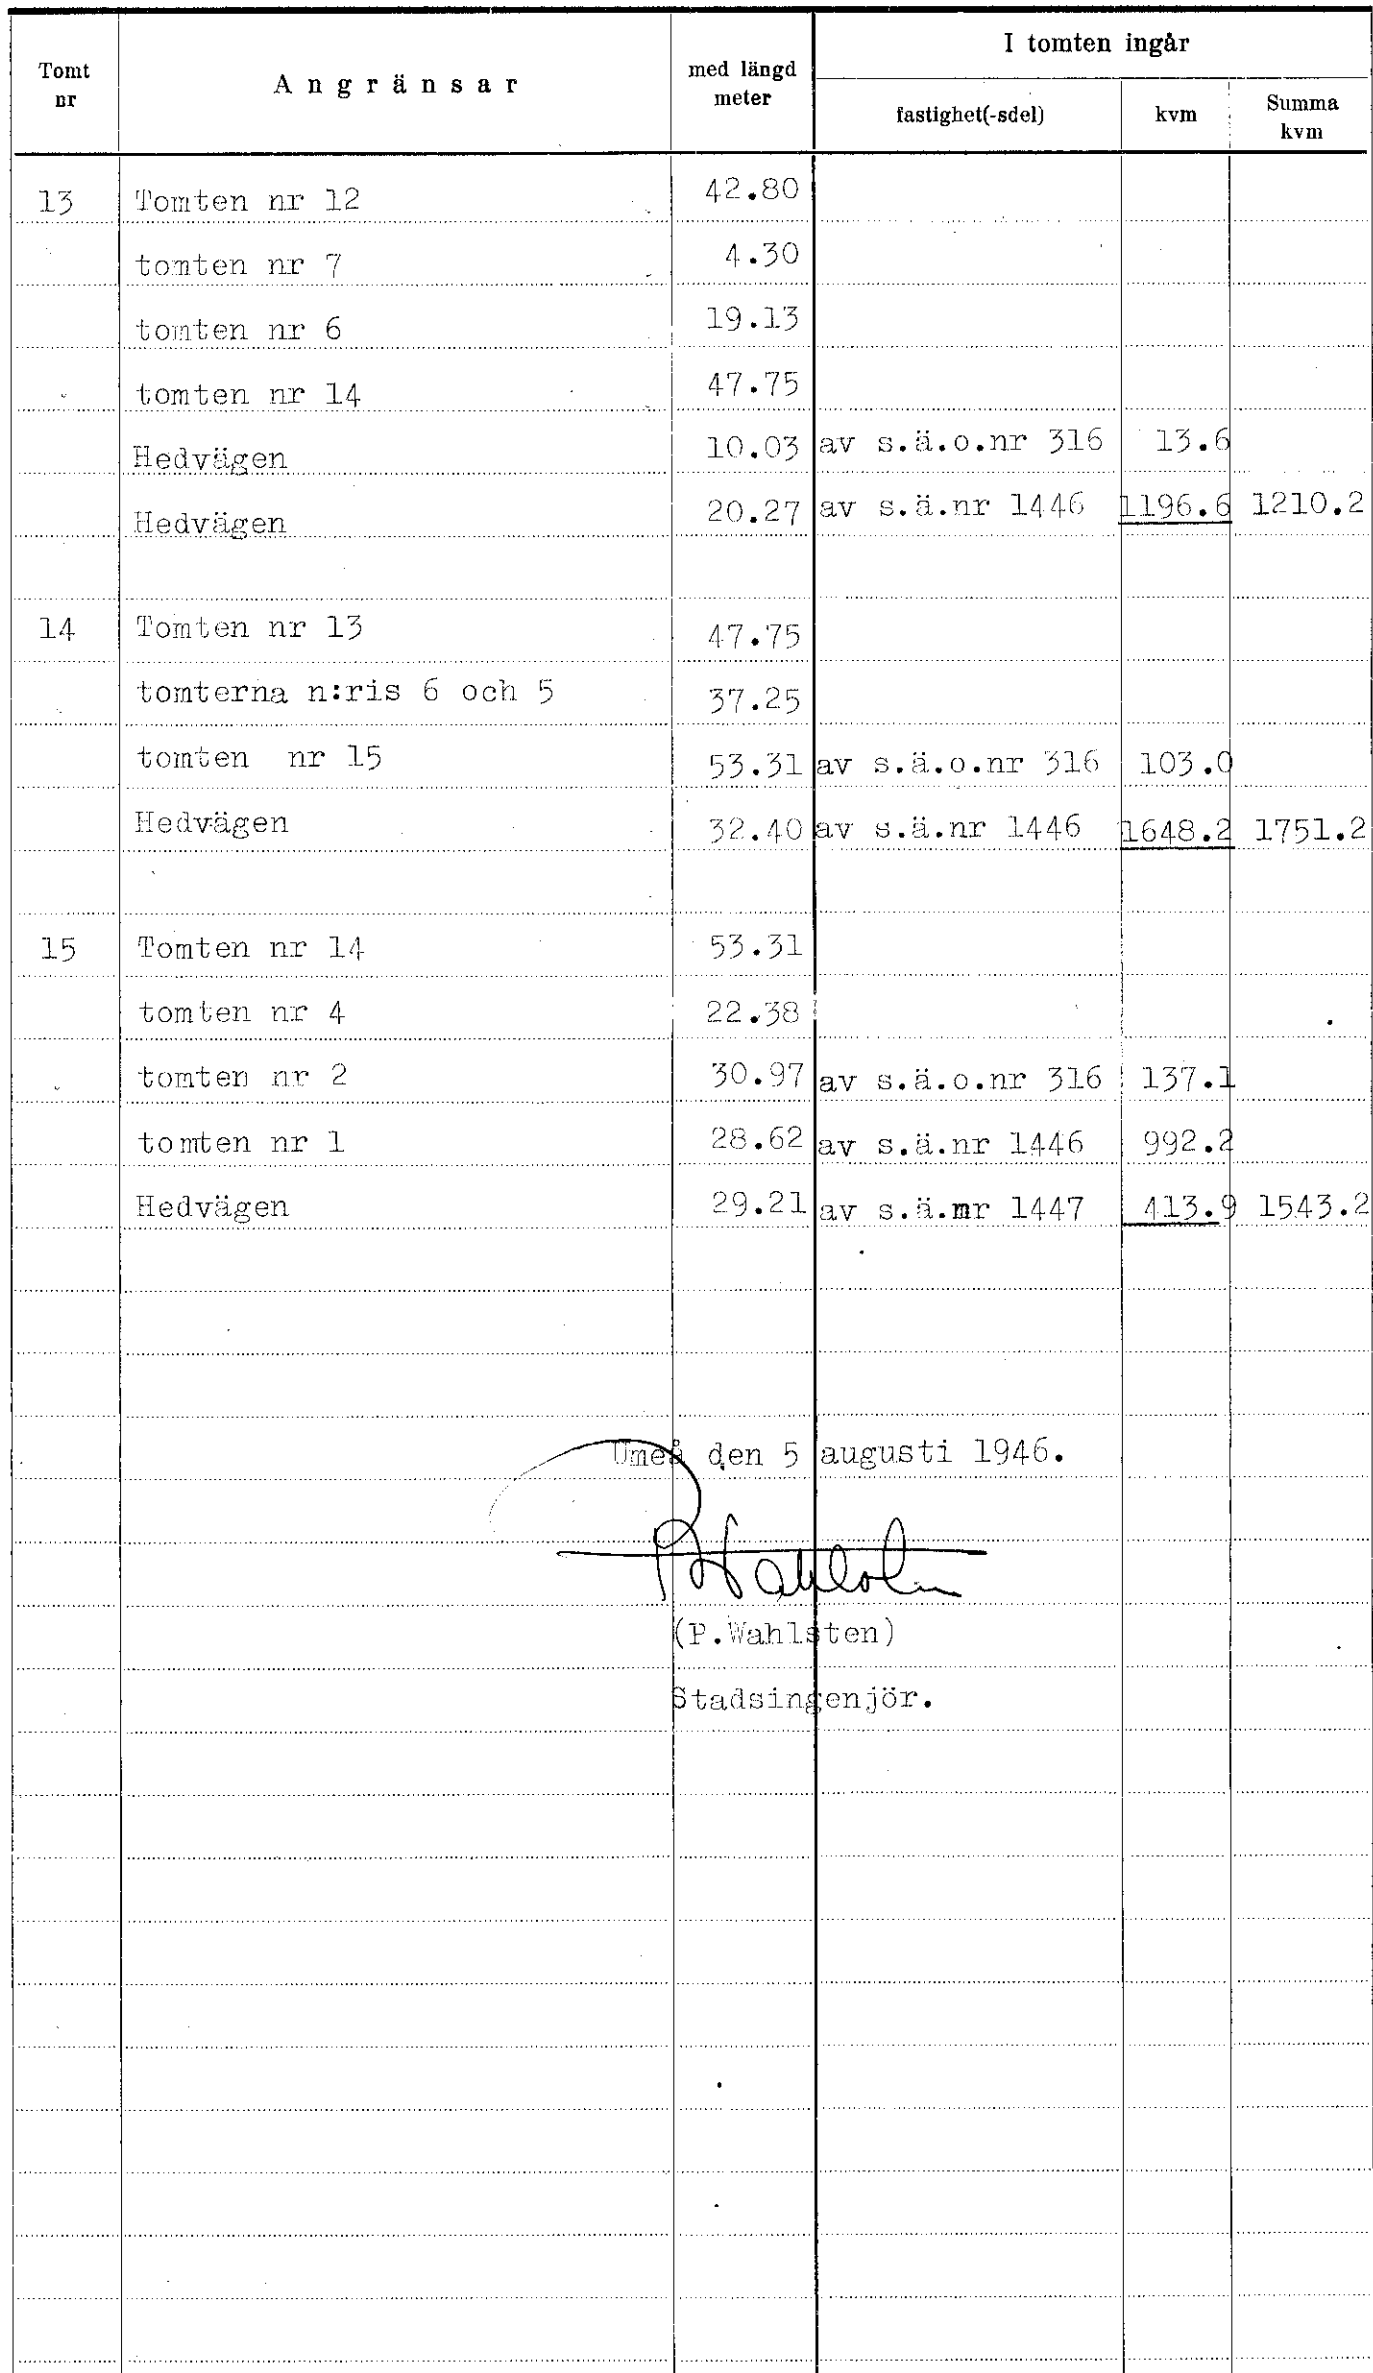 Tomt nr Angränsar med längd meter I tomten ingår
fastighet(-sdel) kvm Summa kvm
13 Tomten nr 12 42.80
tomten nr 7 4.30
tomten nr 6 19.13
tomten nr 14 47.75
Hedvägen 10.03 av s.ä.o.nr 316 13.6
Hedvägen 20.27 av s.ä.nr 1446 1196.6 1210.2
14 Tomten nr 13 47.75
tomterna n:ris 6 och 5 37.25
tomten nr 15 53.31 av s.ä.o.nr 316 103.0
Hedvägen 32.40 av s.ä.nr 1446 1648.2 1751.2
15 Tomten nr 14 53.31
tomten nr 4 22.38
tomten nr 2 30.97 av s.ä.o.nr 316 137.1
tomten nr 1 28.62 av s.ä.nr 1446 992.2
Hedvägen 29.21 av s.ä.mr 1447 413.9 1543.2
Umeå den 5 augusti 1946.
(P.Wahlsten)
Stadsingenjör.